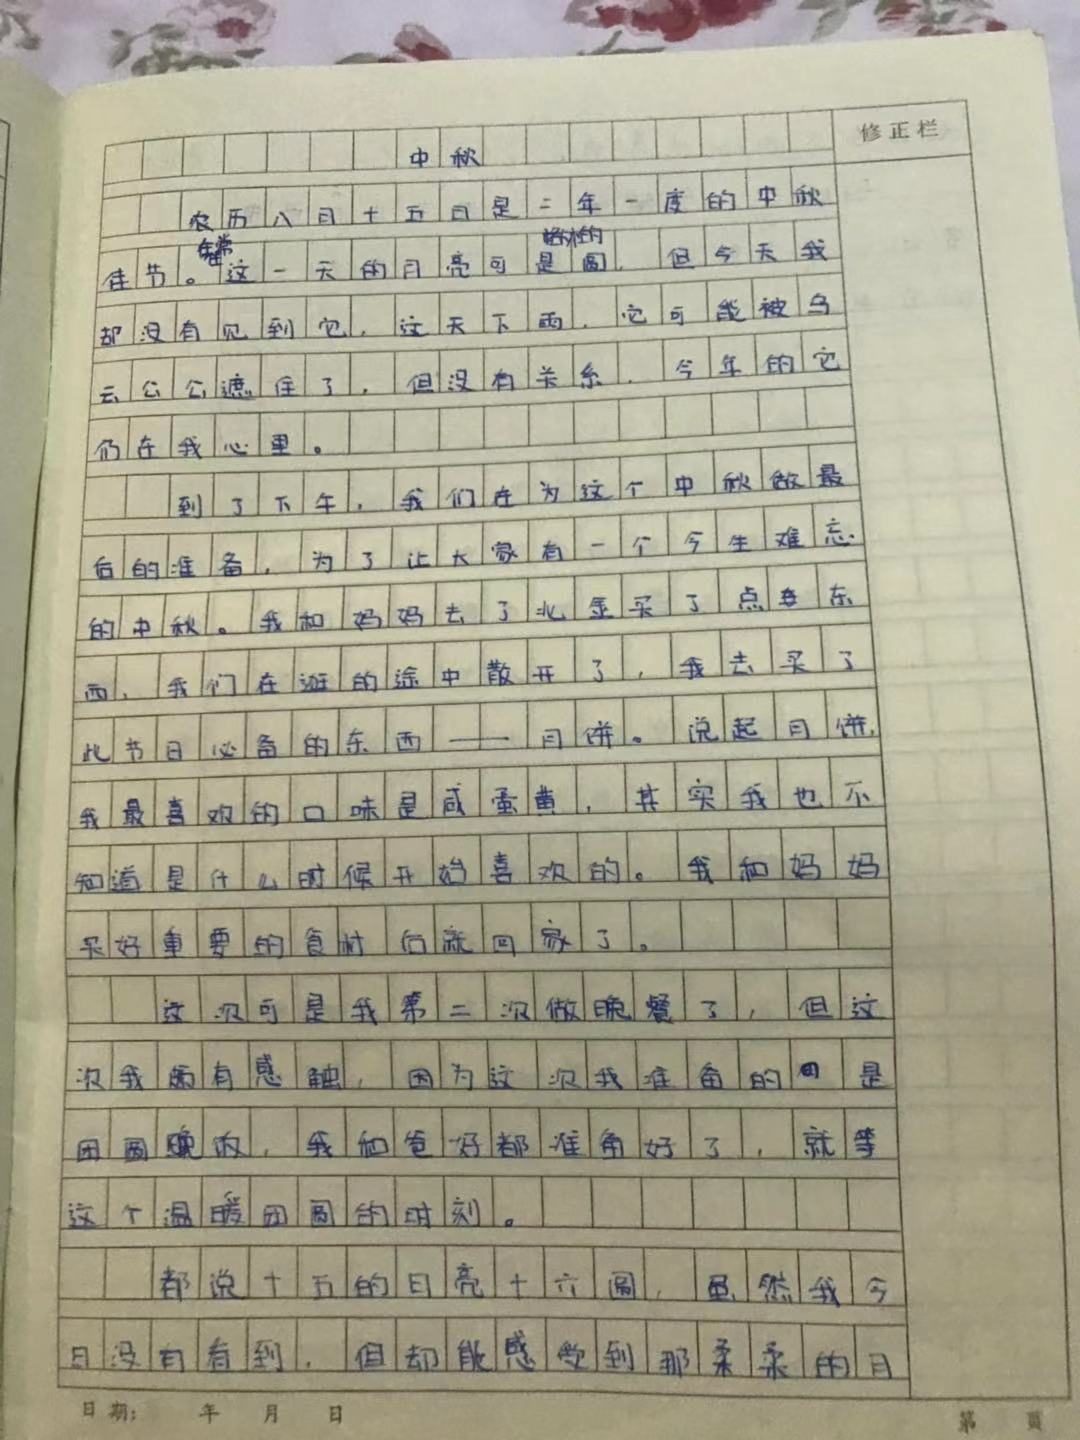 中秋
修正栏
农历八月十五日是二年一度的中秋
往常
格外的
佳节。这一天的月亮可是圆，但今天我
却没有见到它，这天下雨，它可能被乌
云公公遮住了，但没有关系，今年的它
仍在我心里。
到了下午，我们在为这个中秋做最
后的准备，为了让大家有一个今生难忘
的中秋。我和妈妈去了北金买了点东
西，我们在逛的途中散开了，我去买了
此节日必备的东西——月饼。说起月饼，
我最喜欢的口味是咸蛋黄，其实我也不
知道是什么时候开始喜欢的。我和妈妈
买好重要的食材后就回家了。
这次可是我第二次做晚餐了，但这
次我颇有感触，因为这次我准备的是
团圆晚饭，我和爸好都准备好了，就等
这个温暖团圆的时刻。
都说十五的月亮十六圆，虽然我今
日没有看到，但却能感受到那柔柔的月
日期：年月日
第页